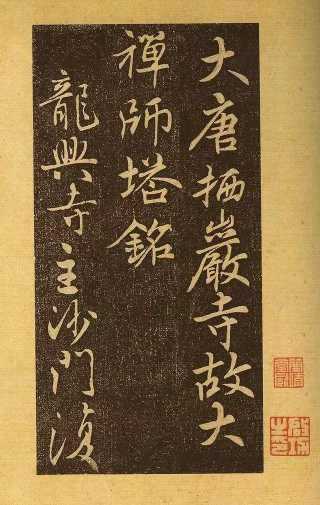 大唐栖巖寺故大
禪師塔銘
龍興寺主沙門復
啓功